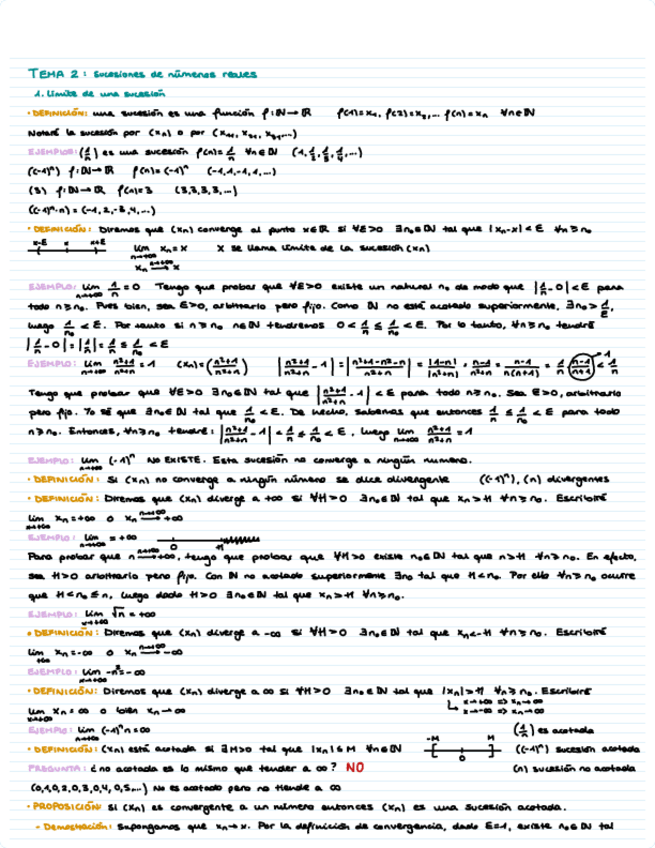 TEMA 2: Sucesiones de números reales
1. Límite de una sucesión
• DEFINICIÓN: una sucesión es una función f: ℕ→ℝ f(1)=x₁, f(2)=x₂,... f(n)=xₙ ∀n∈ℕ
Notaré la sucesión por (xₙ) o por (x₁, x₂, x₃,...)
EJEMPLOS: (1/n) es una sucesión f(n)=1/n ∀n∈ℕ (1, 1/2, 1/3, 1/4,...)
((-1)ⁿ) f: ℕ→ℝ f(n)=(-1)ⁿ (-1,1,-1,1,...)
(3) f: ℕ→ℝ f(n)=3 (3,3,3,3,...)
((-1)ⁿ·n) = (-1,2,-3,4,...)
• DEFINICIÓN: Diremos que (xₙ) converge al punto x∈ℝ si ∀ε>0 ∃n₀∈ℕ tal que |xₙ-x|<ε ∀n≥n₀
x-ε x x+ε lim n→+∞ xₙ=x x se llama límite de la sucesión (xₙ)
xₙ n→+∞ → x
EJEMPLO: lim n→+∞ 1/n = 0 Tengo que probar que ∀ε>0 existe un natural n₀ de modo que |1/n - 0|<ε para
todo n≥n₀. Pues bien, sea ε>0, arbitrario pero fijo. Como ℕ no está acotado superiormente, ∃n₀>1/ε,
luego 1/n₀ < ε. Por tanto si n≥n₀ n∈ℕ tendremos 0<1/n ≤ 1/n₀ < ε. Por lo tanto, ∀n≥n₀ tendré
|1/n - 0| = |1/n| = 1/n ≤ 1/n₀ < ε
EJEMPLO: lim n→+∞ n²+1/n²+n = 1 (xₙ)=(n²+1/n²+n) |n²+1/n²+n - 1| = |n²+1-n²-n/n²+n| = |1-n|/|n²+n| = n-1/n²+n = n-1/n(n+1) = 1/n (n-1/n+1) < 1/n
Tengo que probar que ∀ε>0 ∃n₀∈ℕ tal que |n²+1/n²+n - 1| < ε para todo n≥n₀. Sea ε>0, arbitrario
pero fijo. Yo sé que ∃n₀∈ℕ tal que 1/n₀ < ε. De hecho, sabemos que entonces 1/n ≤ 1/n₀ < ε para todo
n≥n₀. Entonces, ∀n≥n₀ tendré: |n²+1/n²+n - 1| < 1/n ≤ 1/n₀ < ε, luego lim n→+∞ n²+1/n²+n = 1
EJEMPLO: lim n→+∞ (-1)ⁿ NO EXISTE. Esta sucesión no converge a ningún numero.
• DEFINICIÓN: Si (xₙ) no converge a ningún número se dice divergente ((-1)ⁿ), (n) divergentes
• DEFINICIÓN: Diremos que (xₙ) diverge a +∞ si ∀M>0 ∃n₀∈ℕ tal que xₙ>M ∀n≥n₀. Escribiré
lim n→+∞ xₙ=+∞ o xₙ n→+∞ → +∞
EJEMPLO: lim n→+∞ = +∞ 0 M
Para probar que n n→+∞ → +∞, tengo que probar que ∀M>0 existe n₀∈ℕ tal que n>M ∀n≥n₀. En efecto,
sea M>0 arbitrario pero fijo. Con ℕ no acotado superiormente ∃n₀ tal que M<n₀. Por ello ∀n≥n₀ ocurre
que M<n₀≤n, luego dado M>0 ∃n₀∈ℕ tal que xₙ>M ∀n≥n₀.
EJEMPLO: lim n→+∞ √n = +∞
• DEFINICIÓN: Diremos que (xₙ) diverge a -∞ si ∀M>0 ∃n₀∈ℕ tal que xₙ<-M ∀n≥n₀. Escribiré
lim +∞ xₙ=-∞ o xₙ n→+∞ → -∞
EJEMPLO: lim n→+∞ -n²=-∞
• DEFINICIÓN: Diremos que (xₙ) diverge a ∞ si ∀M>0 ∃n₀∈ℕ tal que |xₙ|>M ∀n≥n₀. Escribiré
lim n→+∞ xₙ=∞ o bien xₙ→∞ ↳ x→+∞ ⇒ xₙ→∞ x→-∞ ⇒ xₙ→∞
EJEMPLO: lim n→+∞ (-1)ⁿn=∞ (1/n) es acotada
• DEFINICIÓN: (xₙ) está acotada si ∃M>0 tal que |xₙ|≤M ∀n∈ℕ -M 0 M ((-1)ⁿ) sucesión acotada
PREGUNTA: ¿no acotada es lo mismo que tender a ∞? NO (n) sucesión no acotada
(0,1,0,2,0,3,0,4,0,5,...) No es acotada pero no tiende a ∞
• PROPOSICIÓN: Si (xₙ) es convergente a un número entonces (xₙ) es una sucesión acotada.
- Demostración: Supongamos que xₙ→x. Por la definición de convergencia, dado ε=1, existe n₀∈ℕ tal